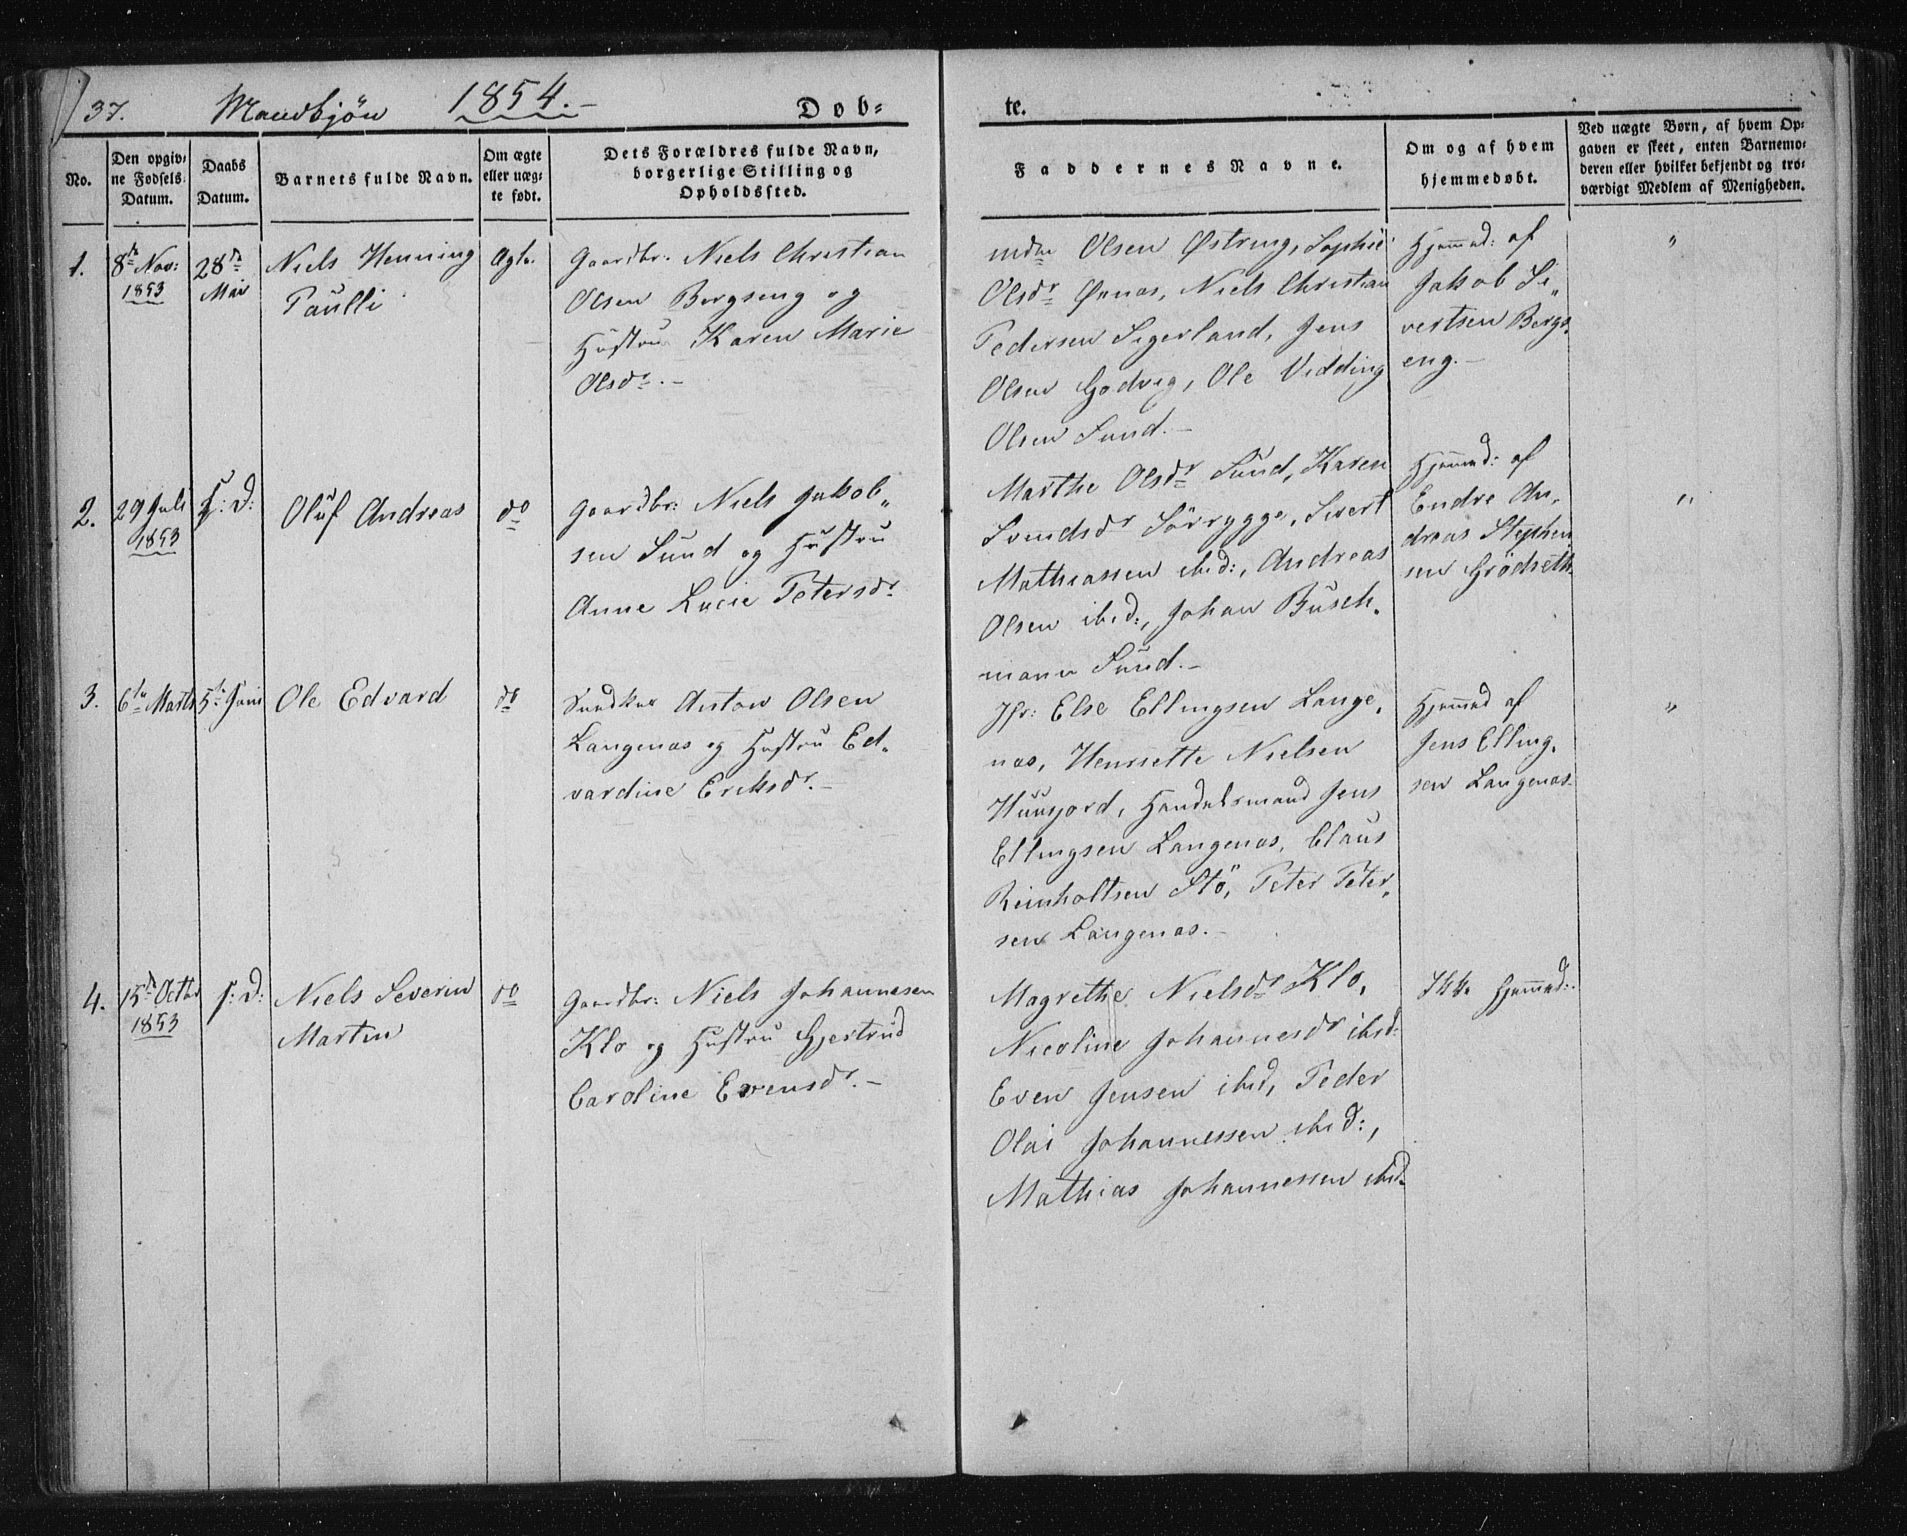 37. Mandkjön 1854.- Døb-
te.
No.
Den opgiv-
ne Fødsels-
Datum.
Daabs
Datum.
Barnets fulde Navn.
Om ægte
eller uæg-
te født.
Dets Forældres fulde Navn,
borgerlige Stilling og
Opholdssted.
Faddernes Navne.
Om og af hvem
hjemmedøbt.
Ved uægte Børn, af hvem Op-
gaven er skeet, enten Barnemo-
deren eller hvilket bekjendt og tro-
værdigt Medlem af Menigheden.
1.
8de Nov:
1853
28de
Mai
Niels Henning
Paulli
Ægte.
Gaardbr. Niels Christian
Olsen Bergseng og
Hustru Karen Marie
Olsdr.-
Olsen Østring, Sophie
Olsdr Ønæs, Niels Christian
Pedersen Sigerland, Jens
Olsen Godvig, Ole Vidding
Olsen Sund.-
Hjemmed: af
Jakob Si„
vertsen Bergs-
eng.-
"
2.
29 Juli
1853
S: D:
Oluf Andreas
do
Gaardbr: Niels Jakob„
sen Sund og Hustru
Anne Lucie Petersdr
Marthe Olsdr Sund, Karen
Svendsdr Sörrygge, Sivert
Mathiassen ibid:, Andreas
Olsen ibid:, Johan Busch„
mann Sund.-
Hjemmed: af
Endre An„
dreas Stephen
sen Grödseth
"
3.
6te Marts
5te Juni
Ole Edvard
do
Anton Olsen
Langenæs og Hustru Ed„
vardine Eriksdr.-
Jfr: Else Ellingsen Lange„
næs, Henriette Nielsen
Huusjord, Handelsmand Jens
Ellingsen Langenæs, Claus
Reinholtsen Stö, Peter Peter„
sen Langenæs.-
Hjemmed af
Jens Elling„
sen Langenæs-
"
4.
15de Octbr
1853
S: D:
Niels Severin
Martin
do
Gaardbr: Niels Johannesen
Klo og Hustru Gjertrud
Caroline Evensdr.-
Magrethe Nielsdr Klo,
Nicoline Johannesdr ibid:
Even Jensen ibid, Peder
Olai Johannessen ibid:,
Mathias Johannessen ibid.
Ikke Hjemmed: